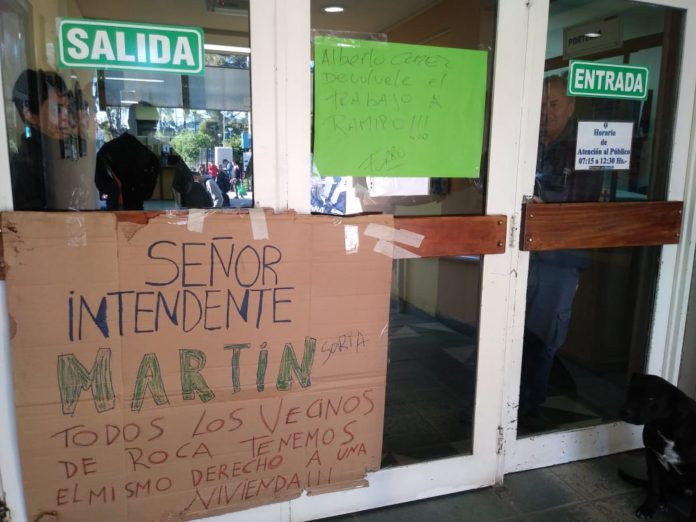 SALIDA
Alberto
Devuelvele el
TRABAJO A
RAMIRO!!!
ENTRADA
Horario
de
Atención al Público
07:15 a 12:30 Hs.-
SEÑOR
INTENDENTE
MARTIN SORIA
TODOS LOS VECINOS
DE ROCA TENEMOS
EL MISMO DERECHO A UNA
VIVIENDA!!!